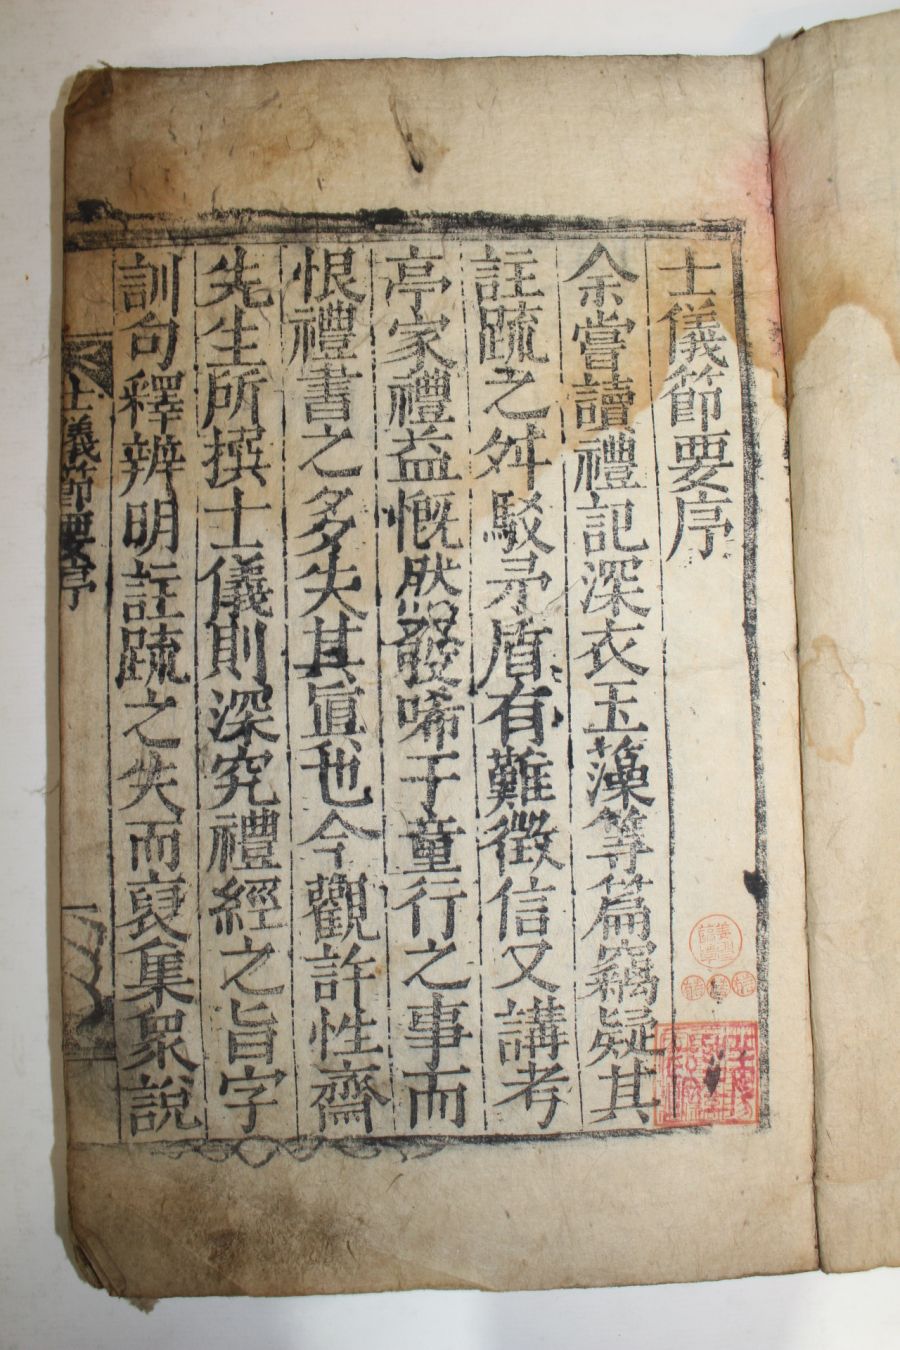 士儀節要序
余嘗讀禮記深衣玉藻等篇竊疑其
註䟽之舛駁矛盾有難徵信又講考
亭家禮益慨然發唏于童行之事而
恨禮書之多失其眞也今觀許性齋
先生所撰士儀則深究禮經之旨字
訓句釋辨明註䟽之失而裒集衆說
士儀節要序